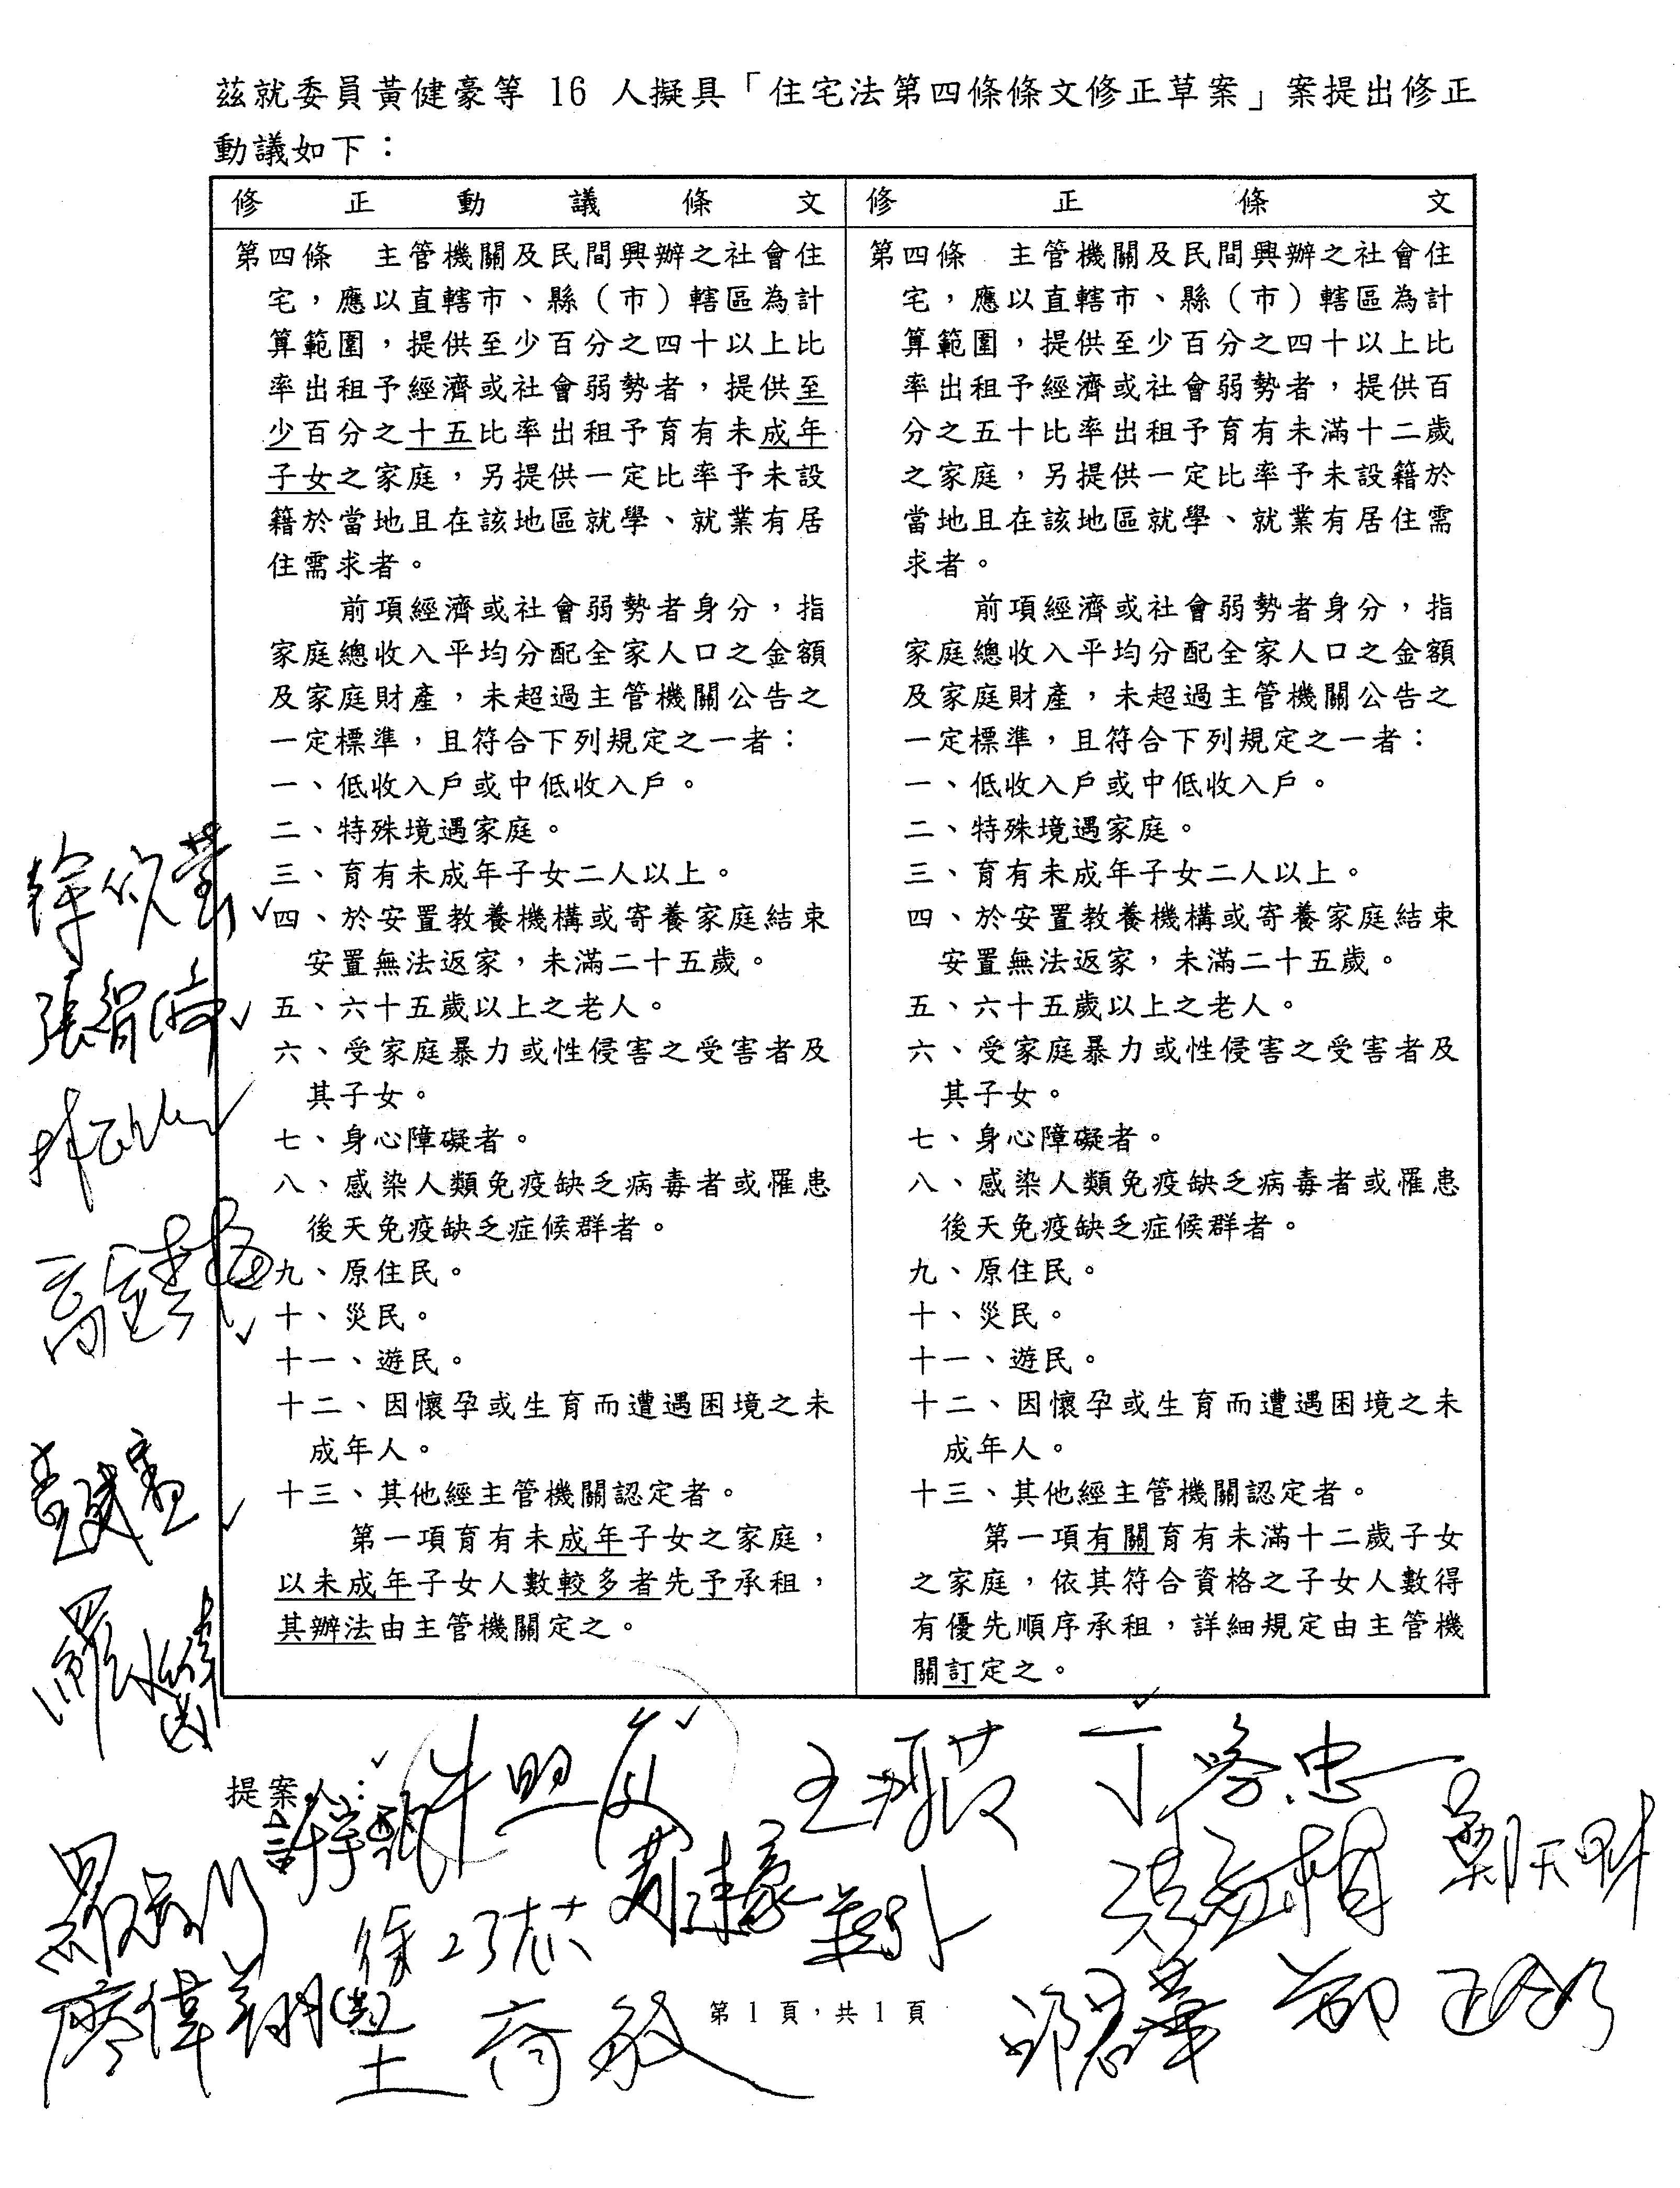 茲就委員黃健豪等 16 人擬具「住宅法第四條條文修正草案」案提出修正
動議如下：
修正動議條文
第四條　主管機關及民間興辦之社會住
宅，應以直轄市、縣（市）轄區為計
算範圍，提供至少百分之四十以上比
率出租予經濟或社會弱勢者，提供至
少百分之十五比率出租予育有未成年
子女之家庭，另提供一定比率予未設
籍於當地且在該地區就學、就業有居
住需求者。
前項經濟或社會弱勢者身分，指
家庭總收入平均分配全家人口之金額
及家庭財產，未超過主管機關公告之
一定標準，且符合下列規定之一者：
一、低收入戶或中低收入戶。
二、特殊境遇家庭。
三、育有未成年子女二人以上。
四、於安置教養機構或寄養家庭結束
安置無法返家，未滿二十五歲。
五、六十五歲以上之老人。
六、受家庭暴力或性侵害之受害者及
其子女。
七、身心障礙者。
八、感染人類免疫缺乏病毒者或罹患
後天免疫缺乏症候群者。
九、原住民。
十、災民。
十一、遊民。
十二、因懷孕或生育而遭遇困境之未
成年人。
十三、其他經主管機關認定者。
第一項育有未成年子女之家庭，
以未成年子女人數較多者先予承租，
其辦法由主管機關定之。
修正條文
第四條　主管機關及民間興辦之社會住
宅，應以直轄市、縣（市）轄區為計
算範圍，提供至少百分之四十以上比
率出租予經濟或社會弱勢者，提供百
分之五十比率出租予育有未滿十二歲
之家庭，另提供一定比率予未設籍於
當地且在該地區就學、就業有居住需
求者。
前項經濟或社會弱勢者身分，指
家庭總收入平均分配全家人口之金額
及家庭財產，未超過主管機關公告之
一定標準，且符合下列規定之一者：
一、低收入戶或中低收入戶。
二、特殊境遇家庭。
三、育有未成年子女二人以上。
四、於安置教養機構或寄養家庭結束
安置無法返家，未滿二十五歲。
五、六十五歲以上之老人。
六、受家庭暴力或性侵害之受害者及
其子女。
七、身心障礙者。
八、感染人類免疫缺乏病毒者或罹患
後天免疫缺乏症候群者。
九、原住民。
十、災民。
十一、遊民。
十二、因懷孕或生育而遭遇困境之未
成年人。
十三、其他經主管機關認定者。
第一項有關育有未滿十二歲子女
之家庭，依其符合資格之子女人數得
有優先順序承租，詳細規定由主管機
關訂定之。
徐欣瑩
張智倫
高金素梅
提案人：
許宇甄
牛煦庭
丁學忠
鄭天財
徐巧芯
黃健豪
洪孟楷
廖偉翔
邱若華
第 1 頁，共 1 頁